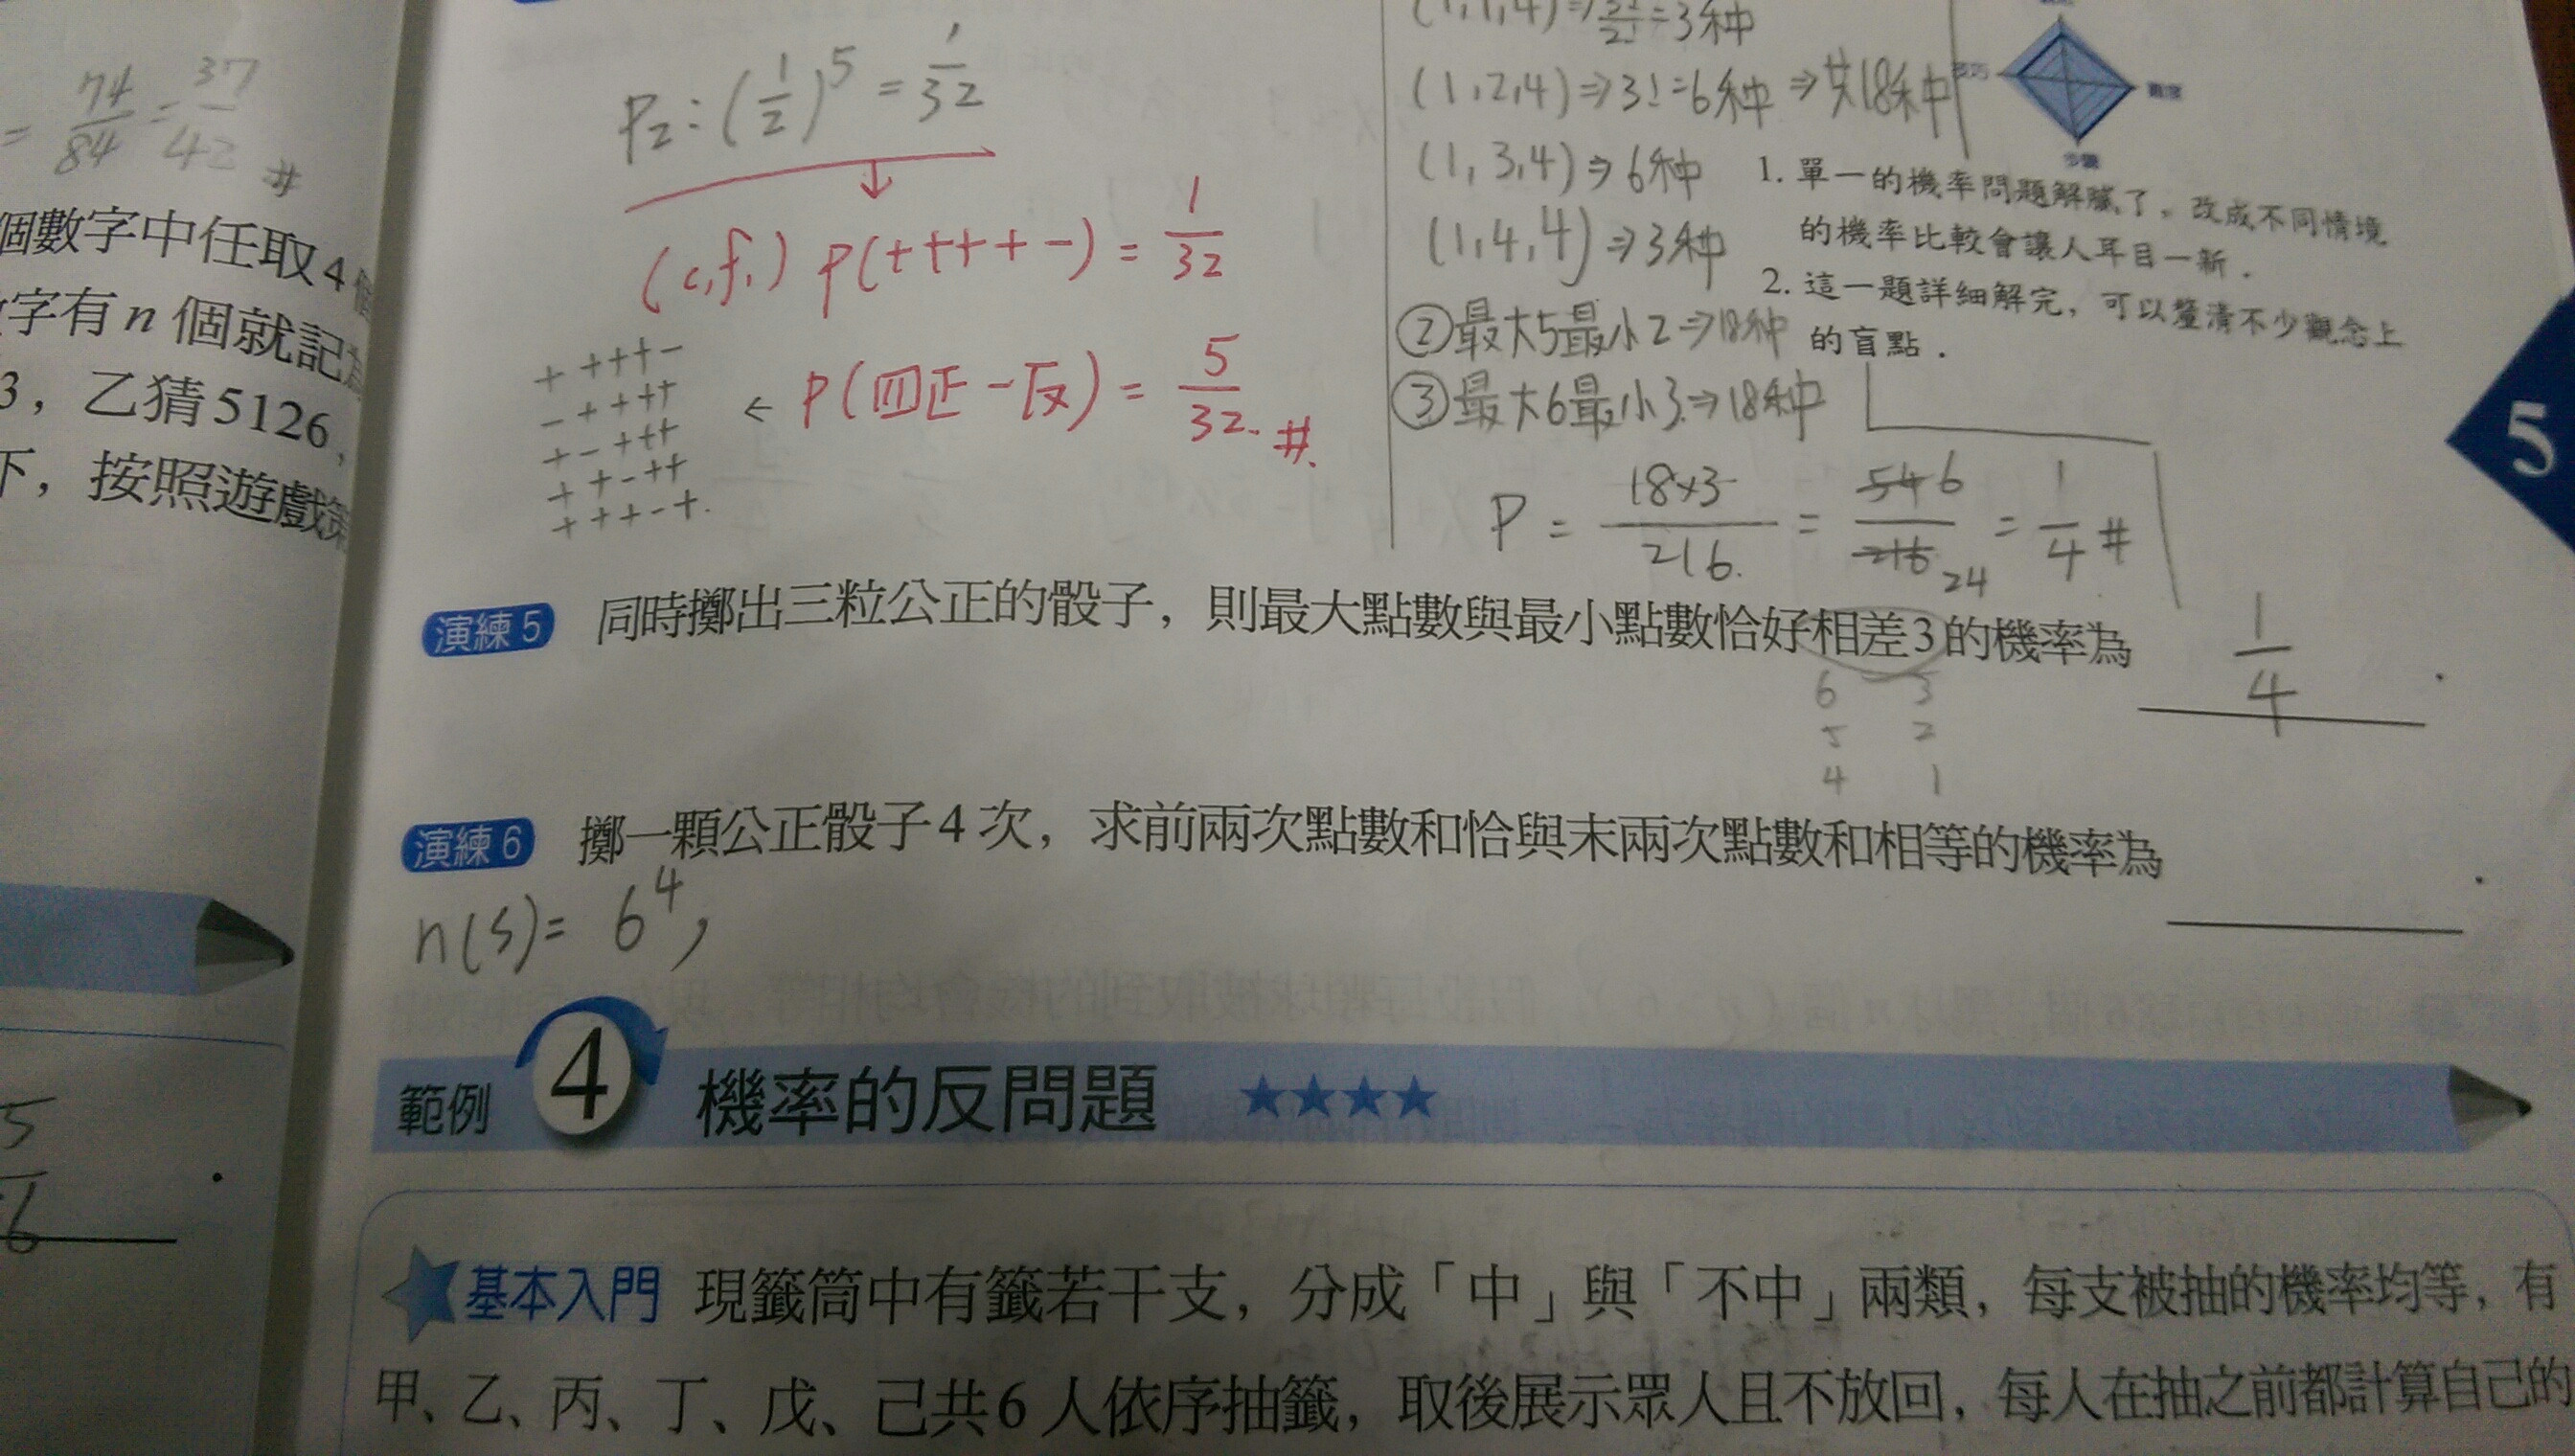 = 74/84 = 37/42 #
個數字中任取4個
字有n個就記為
3，乙猜5126，
下，按照遊戲策
5
6
P₂：(1/2)⁵ = 1/32
P(++++-) = 1/32
++++-
-++++
+-+++
++-++
+++-+.
← P(四正一反) = 5/32. #.
(1,1,4) ⇒ 3!/2! = 3种
(1,2,4) ⇒ 3! = 6种 ⇒ 共18种
(1,3,4) ⇒ 6种
(1,4,4) ⇒ 3种
②最大5最小2 ⇒ 18种
③最大6最小3. ⇒ 18种
P = 18×3/216. = 54/216 6/24 = 1/4 #
1. 單一的機率問題解膩了，改成不同情境
的機率比較會讓人耳目一新．
2. 這一題詳細解完，可以釐清不少觀念上
的盲點．
5
演練5 同時擲出三粒公正的骰子，則最大點數與最小點數恰好相差3的機率為 1/4 ．
6 3
5 2
4 1
演練6 擲一顆公正骰子4次，求前兩次點數和恰與末兩次點數和相等的機率為 ．
n(S) = 6⁴,
範例 4 機率的反問題 ★★★★
基本入門 現籤筒中有籤若干支，分成「中」與「不中」兩類，每支被抽的機率均等，有
甲、乙、丙、丁、戊、己共6人依序抽籤，取後展示眾人且不放回，每人在抽之前都計算自己的